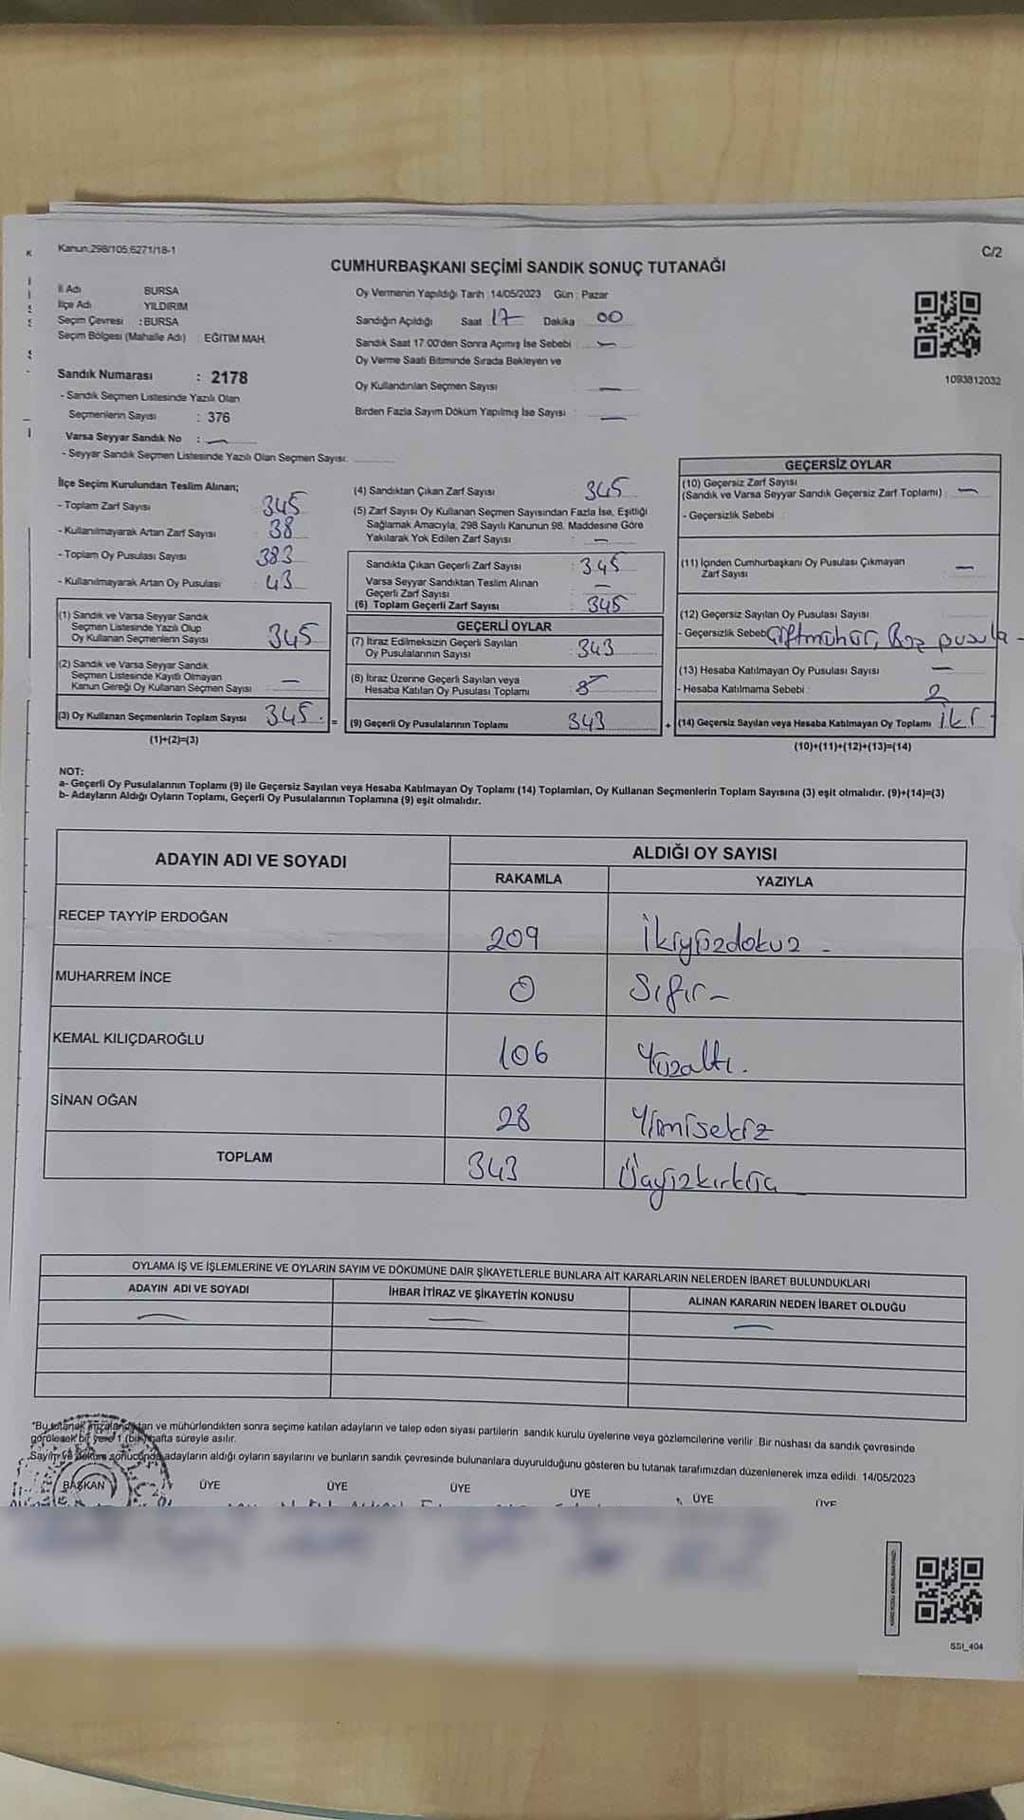 Kanun:298/105;6271/18-1
C/2
CUMHURBAŞKANI SEÇİMİ SANDIK SONUÇ TUTANAĞI
İl Adı BURSA
İlçe Adı YILDIRIM
Seçim Çevresi : BURSA
Seçim Bölgesi (Mahalle Adı) : EĞİTİM MAH.
Sandık Numarası : 2178
- Sandık Seçmen Listesinde Yazılı Olan
Seçmenlerin Sayısı : 376
Varsa Seyyar Sandık No : —
- Seyyar Sandık Seçmen Listesinde Yazılı Olan Seçmen Sayısı:
Oy Vermenin Yapıldığı Tarih :14/05/2023 Gün : Pazar
Sandığın Açıldığı Saat 17 Dakika 00
Sandık Saat 17.00'den Sonra Açımış İse Sebebi : —
Oy Verme Saati Bitiminde Sırada Bekleyen ve
Oy Kullandırılan Seçmen Sayısı —
Birden Fazla Sayım Döküm Yapılmış İse Sayısı : —
1093812032
İlçe Seçim Kurulundan Teslim Alınan;
- Toplam Zarf Sayısı 345
- Kullanılmayarak Artan Zarf Sayısı 38
- Toplam Oy Pusulası Sayısı 383
- Kullanılmayarak Artan Oy Pusulası : 43
(1) Sandık ve Varsa Seyyar Sandık
Seçmen Listesinde Yazılı Olup
Oy Kullanan Seçmenlerin Sayısı 345
(2) Sandık ve Varsa Seyyar Sandık
Seçmen Listesinde Kayıtlı Olmayan
Kanun Gereği Oy Kullanan Seçmen Sayısı —
(3) Oy Kullanan Seçmenlerin Toplam Sayısı 345. =
(1)+(2)=(3)
(4) Sandıktan Çıkan Zarf Sayısı 345
(5) Zarf Sayısı Oy Kullanan Seçmen Sayısından Fazla İse, Eşitliği
Sağlamak Amacıyla, 298 Sayılı Kanunun 98. Maddesine Göre
Yakılarak Yok Edilen Zarf Sayısı —
Sandıkta Çıkan Geçerli Zarf Sayısı : 345
Varsa Seyyar Sandıktan Teslim Alınan
Geçerli Zarf Sayısı —
(6) Toplam Geçerli Zarf Sayısı : 345
GEÇERLİ OYLAR
(7) İtiraz Edilmeksizin Geçerli Sayılan
Oy Pusulalarının Sayısı : 343
(8) İtiraz Üzerine Geçerli Sayılan veya
Hesaba Katılan Oy Pusulası Toplamı
(9) Geçerli Oy Pusulalarının Toplamı 343 +
GEÇERSİZ OYLAR
(10) Geçersiz Zarf Sayısı
(Sandık ve Varsa Seyyar Sandık Geçersiz Zarf Toplamı) : —
- Geçersizlik Sebebi :
(11) İçinden Cumhurbaşkanı Oy Pusulası Çıkmayan
Zarf Sayısı —
(12) Geçersiz Sayılan Oy Pusulası Sayısı
- Geçersizlik Sebebi Çiftmühür, Boş pusula -
(13) Hesaba Katılmayan Oy Pusulası Sayısı —
- Hesaba Katılmama Sebebi : 2
(14) Geçersiz Sayılan veya Hesaba Katılmayan Oy Toplamı İki
(10)+(11)+(12)+(13)=(14)
NOT:
a- Geçerli Oy Pusulalarının Toplamı (9) ile Geçersiz Sayılan veya Hesaba Katılmayan Oy Toplamı (14) Toplamları, Oy Kullanan Seçmenlerin Toplam Sayısına (3) eşit olmalıdır. (9)+(14)=(3)
b- Adayların Aldığı Oyların Toplamı, Geçerli Oy Pusulalarının Toplamına (9) eşit olmalıdır.
ADAYIN ADI VE SOYADI ALDIĞI OY SAYISI
RAKAMLA YAZIYLA
RECEP TAYYİP ERDOĞAN 209 İkiyüzdokuz -
MUHARREM İNCE 0 Sıfır -
KEMAL KILIÇDAROĞLU 106 Yüzaltı.
SİNAN OĞAN 28 Yirmisekiz
TOPLAM 343 Üçyüzkırküç
OYLAMA İŞ VE İŞLEMLERİNE VE OYLARIN SAYIM VE DÖKÜMÜNE DAİR ŞİKAYETLERLE BUNLARA AİT KARARLARIN NELERDEN İBARET BULUNDUKLARI
ADAYIN ADI VE SOYADI İHBAR İTİRAZ VE ŞİKAYETİN KONUSU ALINAN KARARIN NEDEN İBARET OLDUĞU
— — —
*Bu tutanak imzalandıktan ve mühürlendikten sonra seçime katılan adayların ve talep eden siyasi partilerin sandık kurulu üyelerine veya gözlemcilerine verilir. Bir nüshası da sandık çevresinde
görülecek bir yere 1 (bir) hafta süreyle asılır.
Sayım ve döküm sonucunda adayların aldığı oyların sayılarını ve bunların sandık çevresinde bulunanlara duyurulduğunu gösteren bu tutanak tarafımızdan düzenlenerek imza edildi. 14/05/2023
BAŞKAN ÜYE ÜYE ÜYE ÜYE ÜYE ÜYE
SSI_404